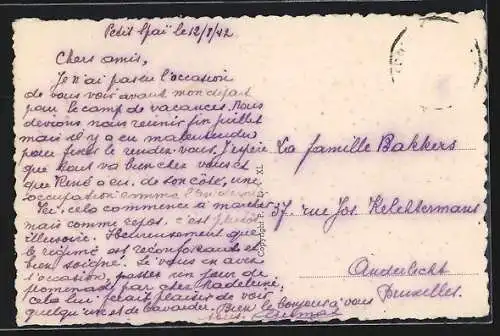 Petit Spaï le 12/8/42
Chers amis,
Je n'ai pas eu l'occasion
de vous voir avant mon départ
pour le camp de vacances. Nous
devions nous réunir fin juillet
mais il y a eu malentendu
pour fixer le rendez-vous. J'espère
que tous va bien chez vous et
que René a eu, de son côté, une
occupation comme
Ici, cela commence à marcher
mais comme repos, c'est plutôt
illusoire. Heureusement que
le régime est réconfortant et
bien soigné. Si vous en avez
l'occasion, passez un jour de
promenade par chez Madeleine,
cela lui ferait plaisir de voir
quelqu'un et de bavarder. Bien le bonjour à vous
tous.
La famille Bakkers
37, rue Jos. Kelchtermans
Anderlecht
Bruxelles.
Copyright
XL